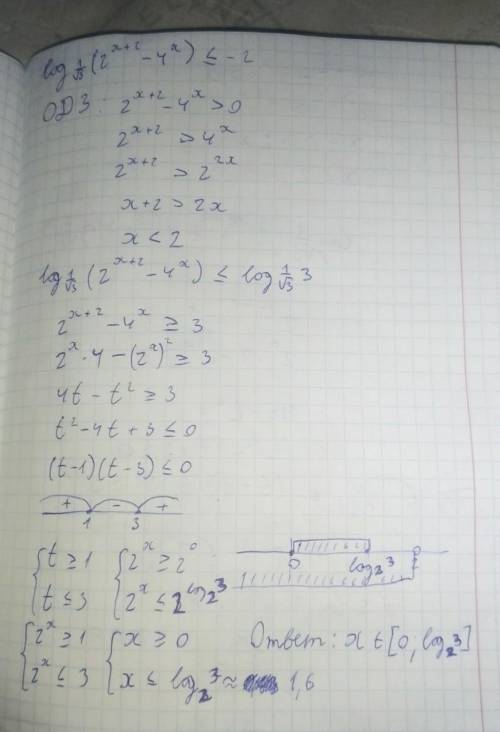 log 1/√3 (2^(x+2) - 4^x) ≤ -2
ОДЗ: 2^(x+2) - 4^x > 0
2^(x+2) > 4^x
2^(x+2) > 2^(2x)
x+2 > 2x
x < 2
log 1/√3 (2^(x+2) - 4^x) ≤ log 1/√3 3
2^(x+2) - 4^x ≥ 3
2^x · 4 - (2^x)^2 ≥ 3
4t - t^2 ≥ 3
t^2 - 4t + 3 ≤ 0
(t-1)(t-3) ≤ 0
+ - +
1 3
{ t ≥ 1 { 2^x ≥ 2^0
{ t ≤ 3 { 2^x ≤ 2^(log_2 3)
0 log_2 3 2
{ 2^x ≥ 1 { x ≥ 0
{ 2^x ≤ 3 { x ≤ log_2 3 ≈ 1,6
Ответ: x ∈ [0; log_2 3]